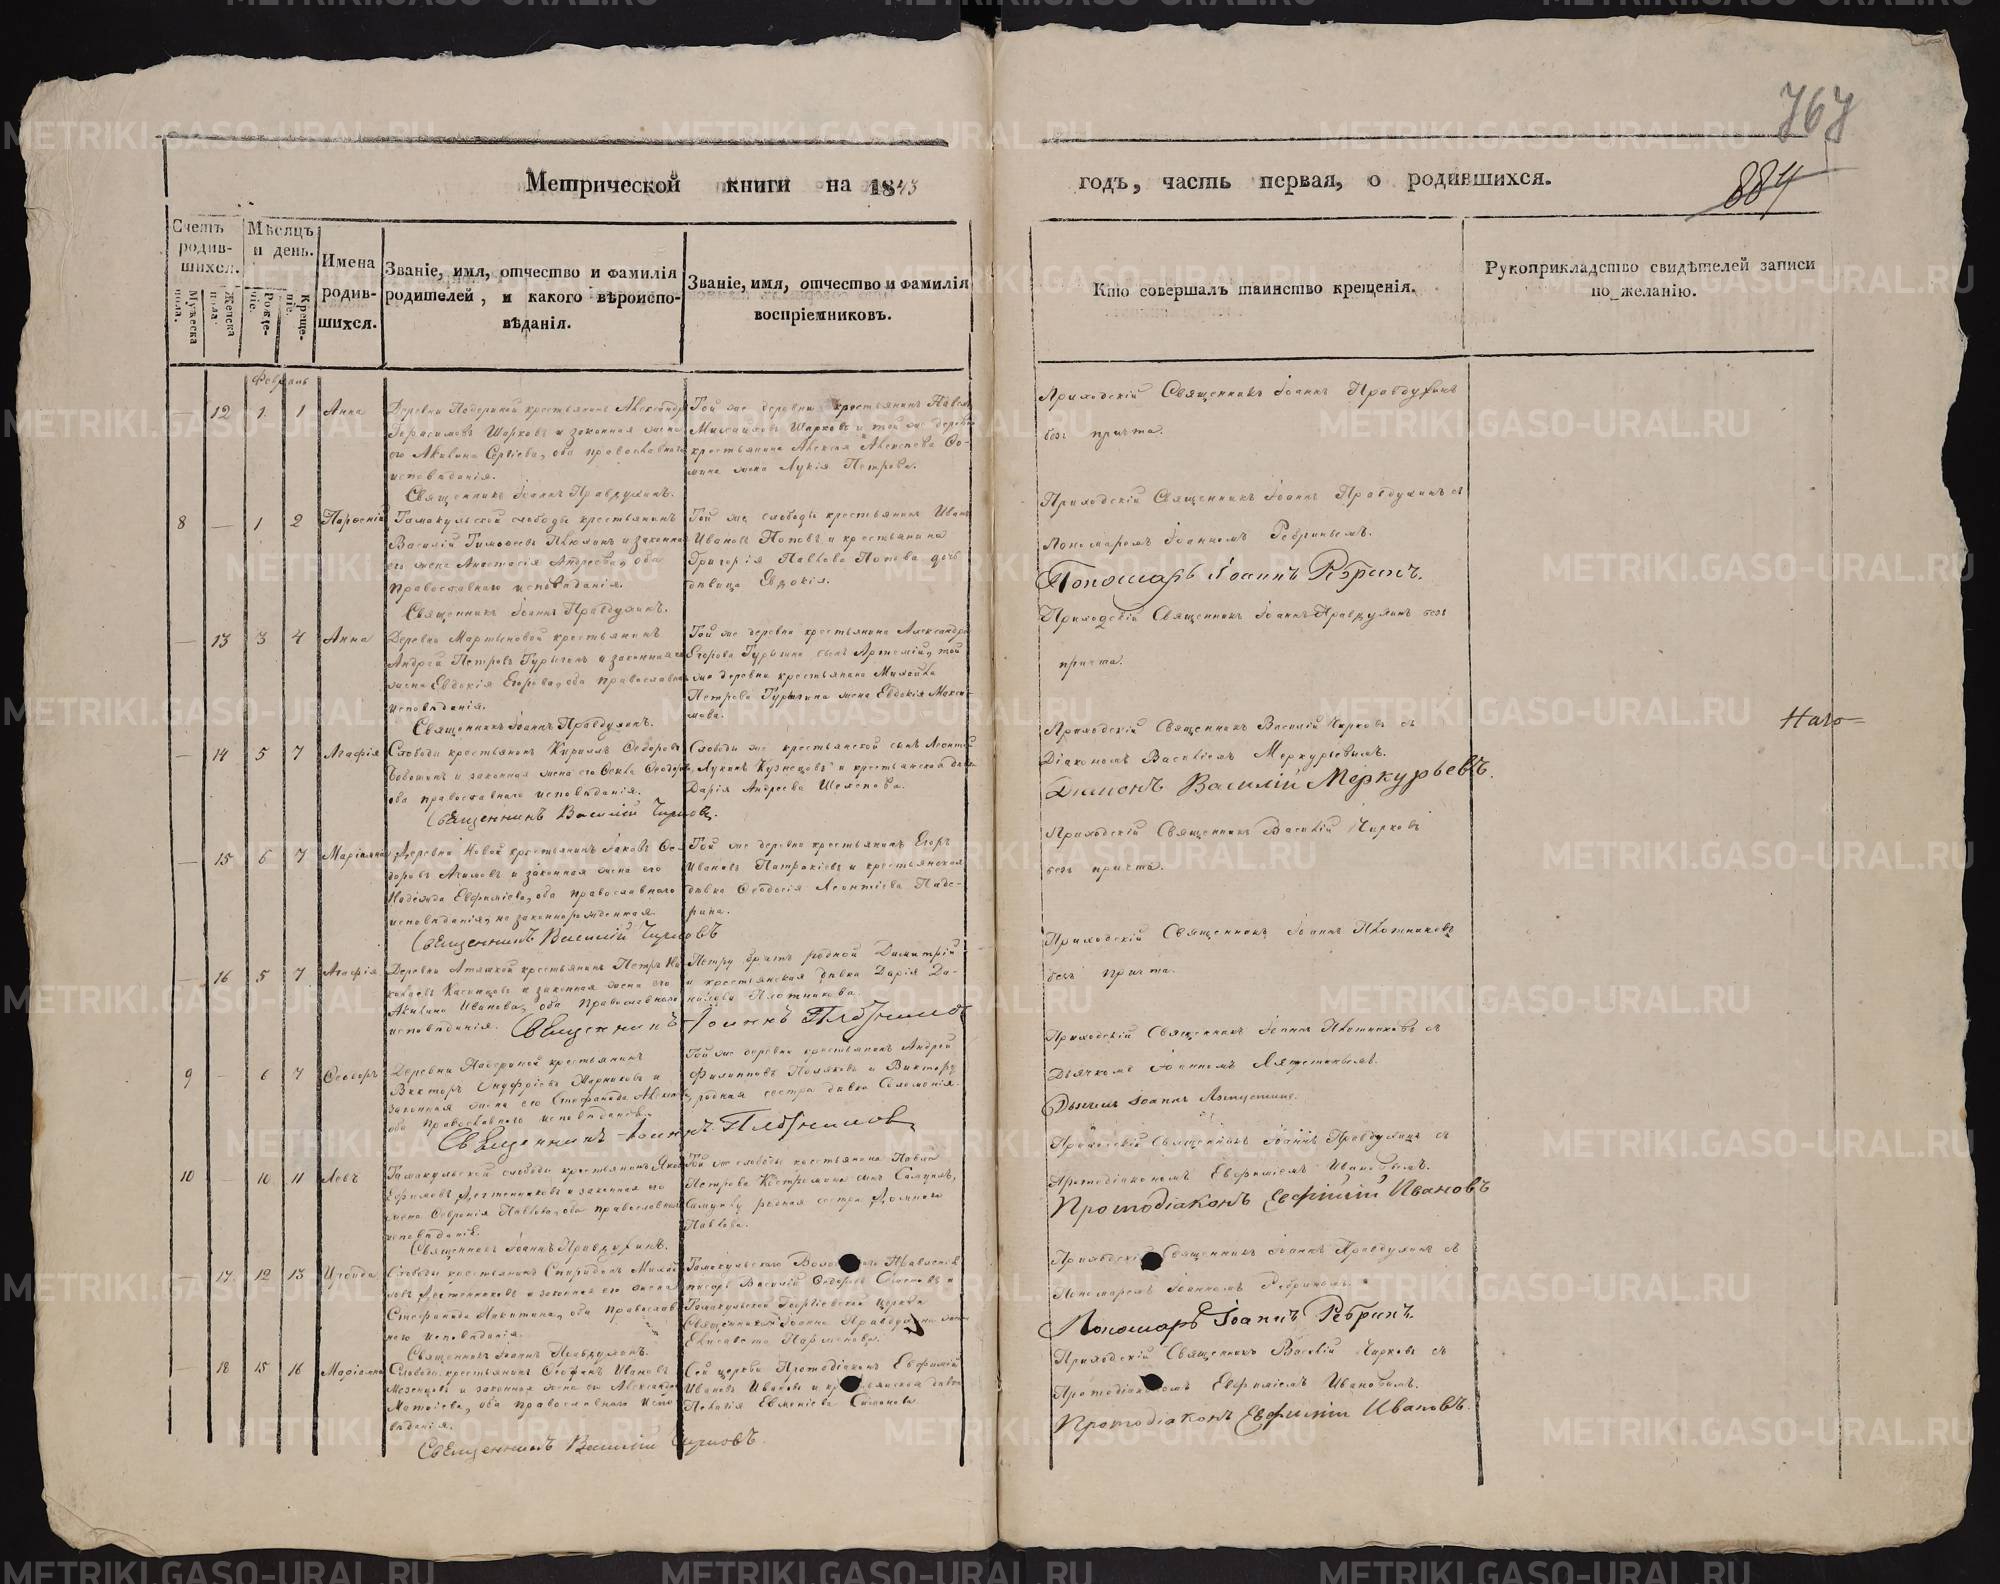 767
884
Метрической книги на 1843
годъ, часть первая, о родившихся.
Счетъ родившихся.
Мужеска пола.
Женска пола.
Мѣсяцъ и день.
Рожденіе.
Крещеніе.
Имена родившихся.
Званіе, имя, отчество и фамилія родителей, и какого вѣроисповѣданія.
Званіе, имя, отчество и фамилія воспріемниковъ.
Кто совершалъ таинство крещенія.
Рукоприкладство свидѣтелей записи по желанію.
Февраль
— 12 1 1 Анна
крестьянинъ Александръ
Герасимовъ Шарковъ и законная жена
его Акилина Сергіева, оба православнаго
исповѣданія.
Священникъ Іоаннъ Правдухинъ.
Той же деревни крестьянинъ Павелъ
Михайловъ Шарковъ и той же деревни
крестьянина Алексея
жена Лукія Петрова.
Приходскій Священникъ Іоаннъ Правдухинъ
безъ причта.
8 — 1 2 Парѳеній
Тамакульской слободы крестьянинъ
Василій Тимоѳеевъ и законная
его жена Анастасія Андреева, оба
православнаго исповѣданія.
Священникъ Іоаннъ Правдухинъ.
Той же слободы крестьянинъ Иванъ
Ивановъ Поповъ и крестьянина
Григорія Павлова Попова дочь
дѣвица Евдокія.
Приходскій Священникъ Іоаннъ Правдухинъ съ
Пономаремъ Іоанномъ Ребринымъ.
Пономарь Іоаннъ Ребринъ.
— 13 3 4 Анна
Деревни Мартыновой крестьянинъ
Андрей Петровъ и законная его
жена Евдокія Егорова, оба православнаго
исповѣданія.
Священникъ Іоаннъ Правдухинъ.
Той же деревни крестьянина Александра
Егорова сынъ Артемій, той
же деревни крестьянина Михайла
Петрова жена Евдокія Макси-
мова.
Приходскій Священникъ Іоаннъ Правдухинъ безъ
причта.
— 14 5 7 Агафія
Слободы крестьянинъ Кириллъ Ѳедоровъ
и законная жена его Ѳекла
оба православнаго исповѣданія.
Священникъ Василій Чирковъ.
Слободы же крестьянской сынъ Леонтій
Лукинъ Кузнецовъ и крестьянская дѣвка
Дарія Андреева
Приходскій Священникъ Василій Чирковъ съ
Діакономъ Василіемъ Меркурьевымъ.
Діаконъ Василій Меркурьевъ.
Наго=
— 15 6 7 Маріамна
Деревни Новой крестьянинъ Іаковъ Ѳе-
доровъ и законная жена его
Надежда Евфиміева, оба православнаго
исповѣданія, не законнорожденная.
Священникъ Василій Чирковъ
Той же деревни крестьянинъ Егоръ
Ивановъ и крестьянская
дѣвка Ѳеодосія Леонтіева Паде-
рина.
Приходскій Священникъ Василій Чирковъ
безъ причта.
— 16 5 7 Агафія
Деревни крестьянинъ Петръ Ни-
колаевъ и законная жена его
Акилина Иванова, оба православнаго
исповѣданія. Священникъ Іоаннъ Плотниковъ
Петру братъ родной Димитрій
и крестьянская дѣвка Дарія Да-
нилова Плотникова.
Приходскій Священникъ Іоаннъ Плотниковъ
безъ причта.
9 — 6 7 Ѳеодоръ
Деревни крестьянинъ
Викторъ и
законная жена его Стефанида
оба православнаго исповѣданія.
Священникъ Іоаннъ Плотниковъ
Той же деревни крестьянинъ Андрей
Филипповъ Поляковъ и Виктору
родная сестра дѣвка Соломонія.
Приходскій Священникъ Іоаннъ Плотниковъ съ
Дьячкомъ Іоанномъ
Дьячекъ Іоаннъ
10 — 10 11 Левъ
Тамакульской слободы крестьянинъ
Ефимовъ и законная его
жена Февронія Павлова, оба православнаго
исповѣданія.
Священникъ Іоаннъ Правдухинъ.
Той же слободы крестьянина Павла
Петрова сынъ Самуилъ,
Самуилу родная сестра
Павлова.
Приходскій Священникъ Іоаннъ Правдухинъ съ
Протодіакономъ Евфиміемъ Ивановымъ.
Протодіаконъ Евфимій Ивановъ
— 17 12 13 Ираида
Слободы крестьянинъ Спиридонъ Михай-
ловъ и законная его жена
Стефанида Никитина, оба православ-
наго исповѣданія.
Священникъ Іоаннъ Правдухинъ.
Тамакульскаго Правленія
писарь Василій Ѳедоровъ и
Тамакульской Георгіевской церкви
Священника Іоанна Правдухина жена
Елисавета Парменова.
Приходскій Священникъ Іоаннъ Правдухинъ съ
Пономаремъ Іоанномъ Ребринымъ.
Пономарь Іоаннъ Ребринъ.
— 18 15 16 Маріамна
Слободы крестьянинъ Стефанъ Ивановъ
Мезенцовъ и законная жена его Александра
оба православнаго испо-
вѣданія.
Священникъ Василій Чирковъ.
Сей церкви Протодіаконъ Евфимій
Ивановъ Ивановъ и крестьянская дѣвка
Пелагія Евменіева Симонова.
Приходскій Священникъ Василій Чирковъ съ
Протодіакономъ Евфиміемъ Ивановымъ.
Протодіаконъ Евфимій Ивановъ.
METRIKI.GASO-URAL.RU